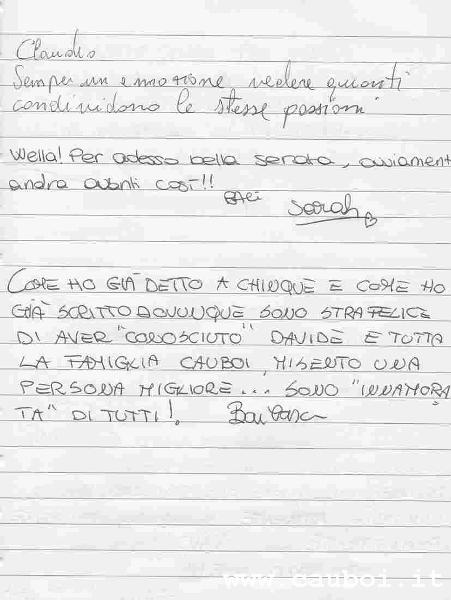 Claudio
Sempre un emozione vedere quanti
condividono le stesse passioni
Wella! Per adesso bella serata, ovviament
andra avanti così!!
BACI
Sarah
COME HO GIÀ DETTO A CHIUNQUE E COME HO
GIÀ SCRITTO DOVUNQUE SONO STRAFELICE
DI AVER "CONOSCIUTO" DAVIDE E TUTTA
LA FAMIGLIA CAUBOI, MI SENTO UNA
PERSONA MIGLIORE... SONO "INNAMORA
TA" DI TUTTI!
Barbara
www.cauboi.it